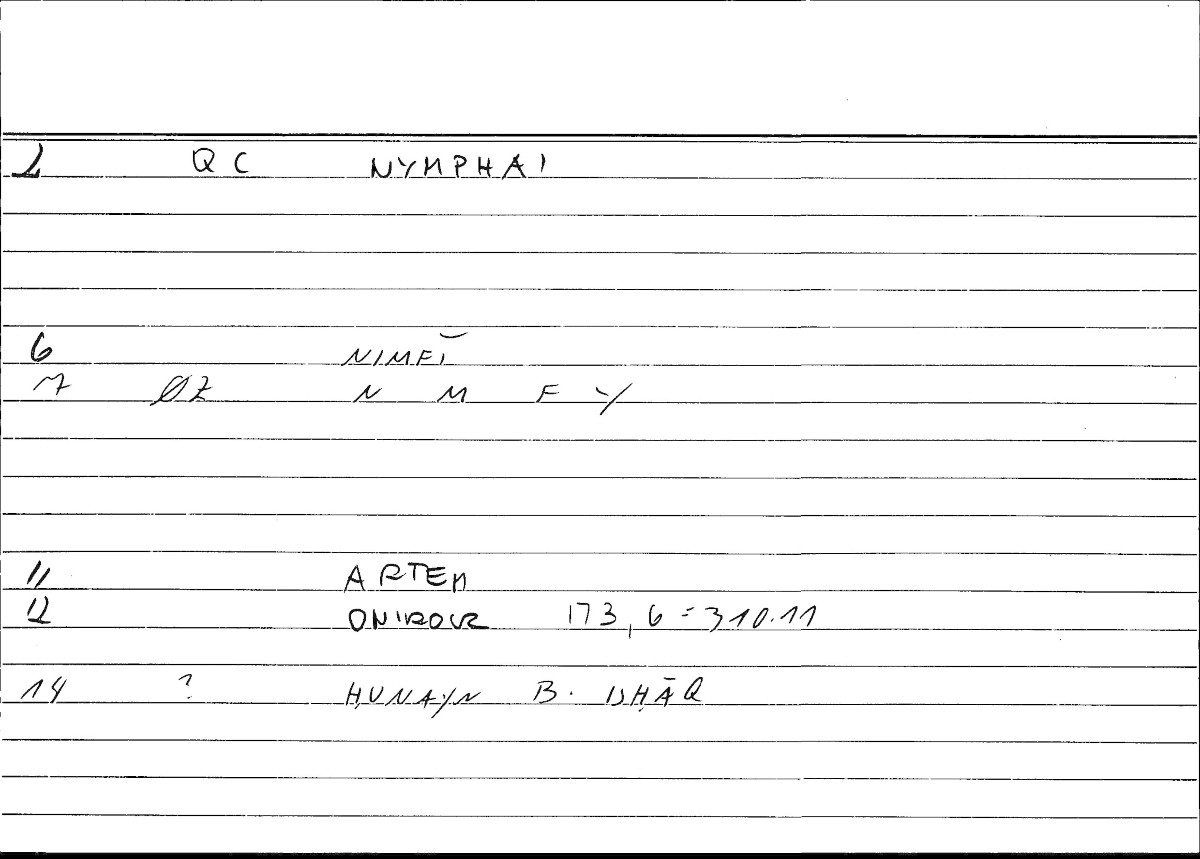 2 QC NYMPHAI
6 NIMFĪ
7 ØZ N M F Y
11 ARTEM
12 ONIROCR 173,6=310.11
14 ? ḤUNAYN B. ISḤĀQ